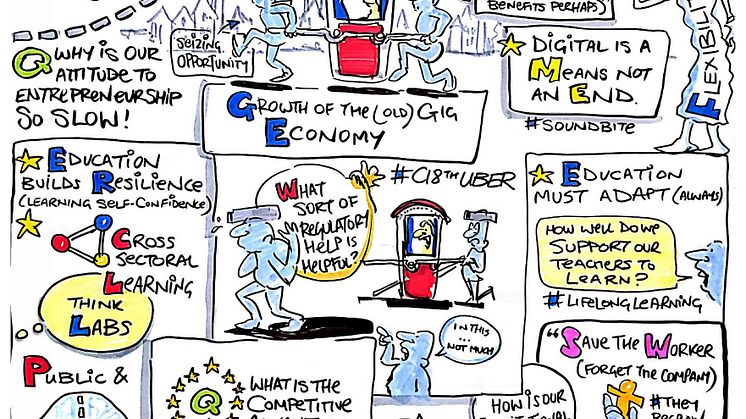 BENEFITS PERHAPS
FLEXIBIL
SEIZING
OPPORTUNITY
Q WHY IS OUR
ATTITUDE TO
ENTREPRENEURSHIP
SO SLOW!
DIGITAL IS A
MEANS NOT
AN END.
#SOUNDBITE
GROWTH OF THE (OLD) GIG
ECONOMY
EDUCATION
BUILDS RESILIENCE
(LEARNING SELF-CONFIDENCE)
CROSS
SECTORAL
LEARNING
THINK
LABS
#C18TH UBER
WHAT
SORT OF
REGULATORY
HELP IS
HELPFUL?
IN THIS
... NOT MUCH
EDUCATION
MUST ADAPT (ALWAYS)
HOW WELL DO WE
SUPPORT OUR
TEACHERS TO
LEARN?
#LIFELONGLEARNING
"SAVE THE WORKER
(FORGET THE COMPANY)
#THEY
PUBLIC &
Q WHAT IS THE
COMPETITIVE
HOW IS OUR